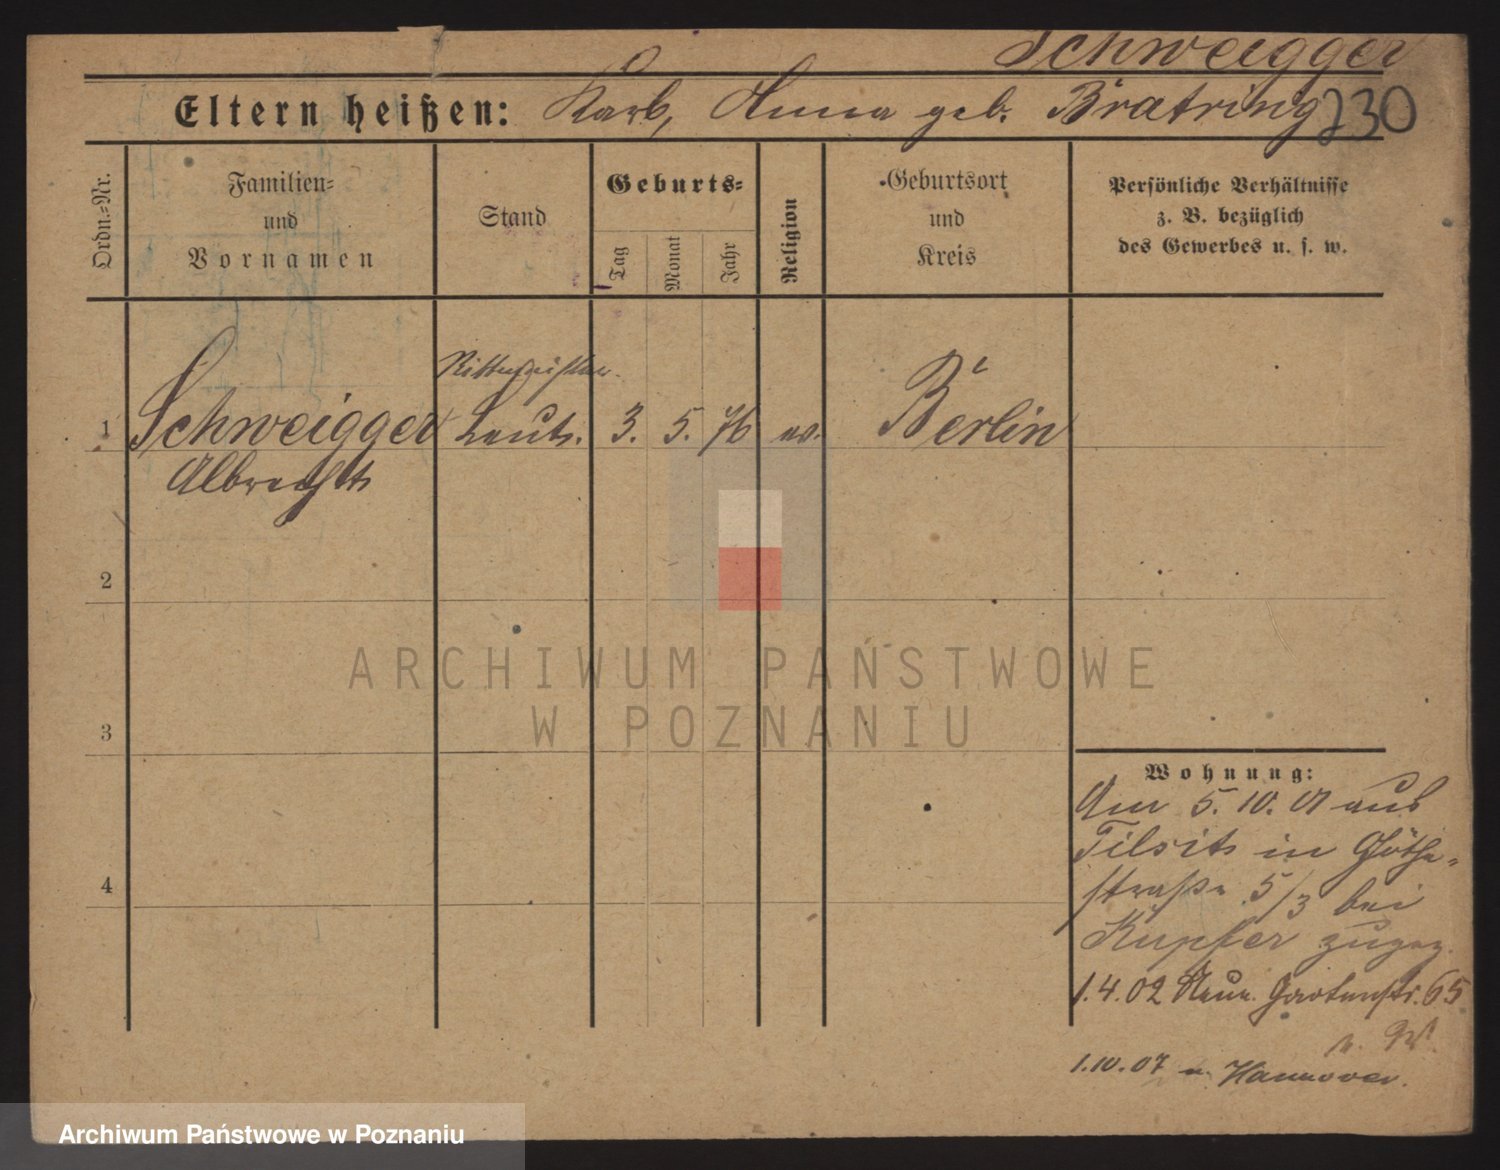 Schweigger
Eltern heißen: Karl, Anna geb. Bratring 230
Ordn.=Nr.
Familien=
und
Vornamen
Stand
Geburts=
Tag
Monat
Jahr
Religion
Geburtsort
und
Kreis
Persönliche Verhältnisse
z. B. bezüglich
des Gewerbes u. s. w.
Rittmeister.
1 Schweigger Leut. 3. 5. 76 ev. Berlin
Albrecht
2
3
4
Wohnung:
Am 5. 10. 01 aus
Tilsit in Göthe-
straße 5/3 bei
Kupfer zugez.
1.4.02 Neue Gartenstr. 65
1.10.07 n. Hannover.
ARCHIWUM PAŃSTWOWE
W POZNANIU
Archiwum Państwowe w Poznaniu